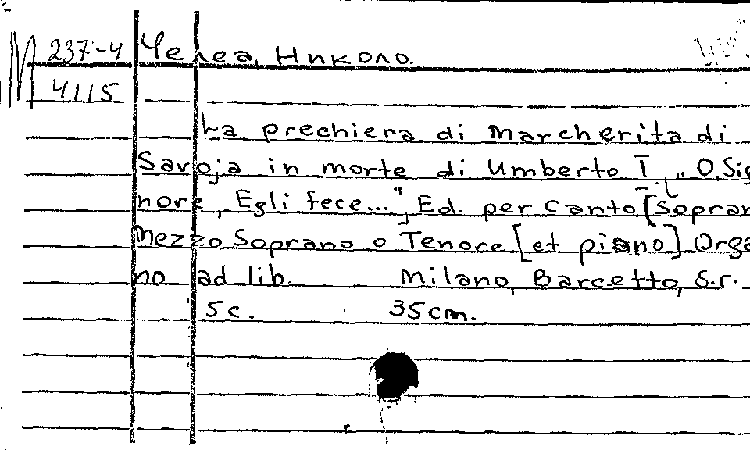 М 237-4 Челеа, Николо.
4115
La prechiera di Marcherita di
Savoja in morte di Umberto I „O, Sig
nore, Egli fece...", Ed. per canto [Sopran
Mezzo Soprano o Tenore [et piano] Orga
no ad lib. Milano, Barcetto, s.r.
5 c. 35 cm.